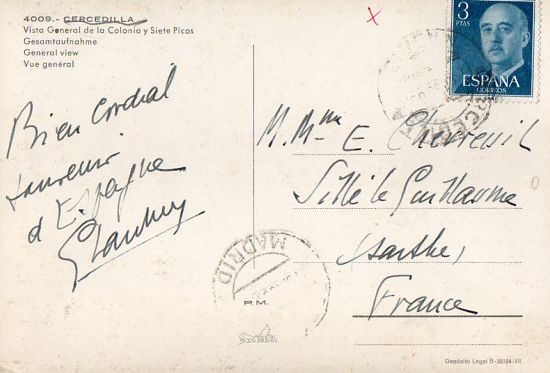 4009.- CERCEDILLA
Vista General de la Colonia y Siete Picos
Gesamtaufnahme
General view
Vue general
3
PTAS
ESPAÑA
CORREOS
CERCEDILLA
Bien Cordial
souvenir
d'Espagne
M. Mme E. Chevreuil
Sillé le Guillaume
Sarthe,
France
MADRID
P.M.
Depósito Legal B-35104-VII